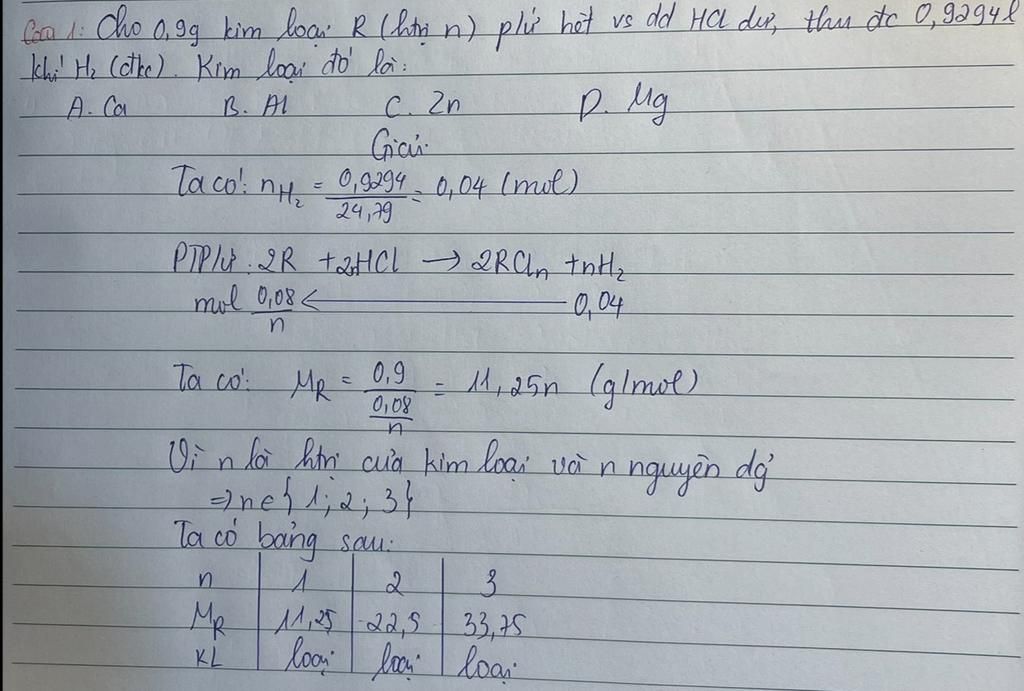 Câu 1: Cho 0,9g kim loại R (htrị n) p/ứ hết vs dd HCl dư, thu đc 0,9294l
khí H₂ (đkc). Kim loại đó là:
A. Ca B. Al C. Zn D. Mg
Giải:
Ta có: n_H₂ = 0,9294/24,79 = 0,04 (mol)
PTP/ứ: 2R + 2nHCl → 2RCln + nH₂
mol 0,08/n ← 0,04
Ta có: M_R = 0,9/(0,08/n) = 11,25n (g/mol)
Vì n là htrị của kim loại và n nguyên dg
⇒ n ∈ {1; 2; 3}
Ta có bảng sau:
n | 1 | 2 | 3
M_R | 11,25 | 22,5 | 33,75
KL | loại | loại | loại